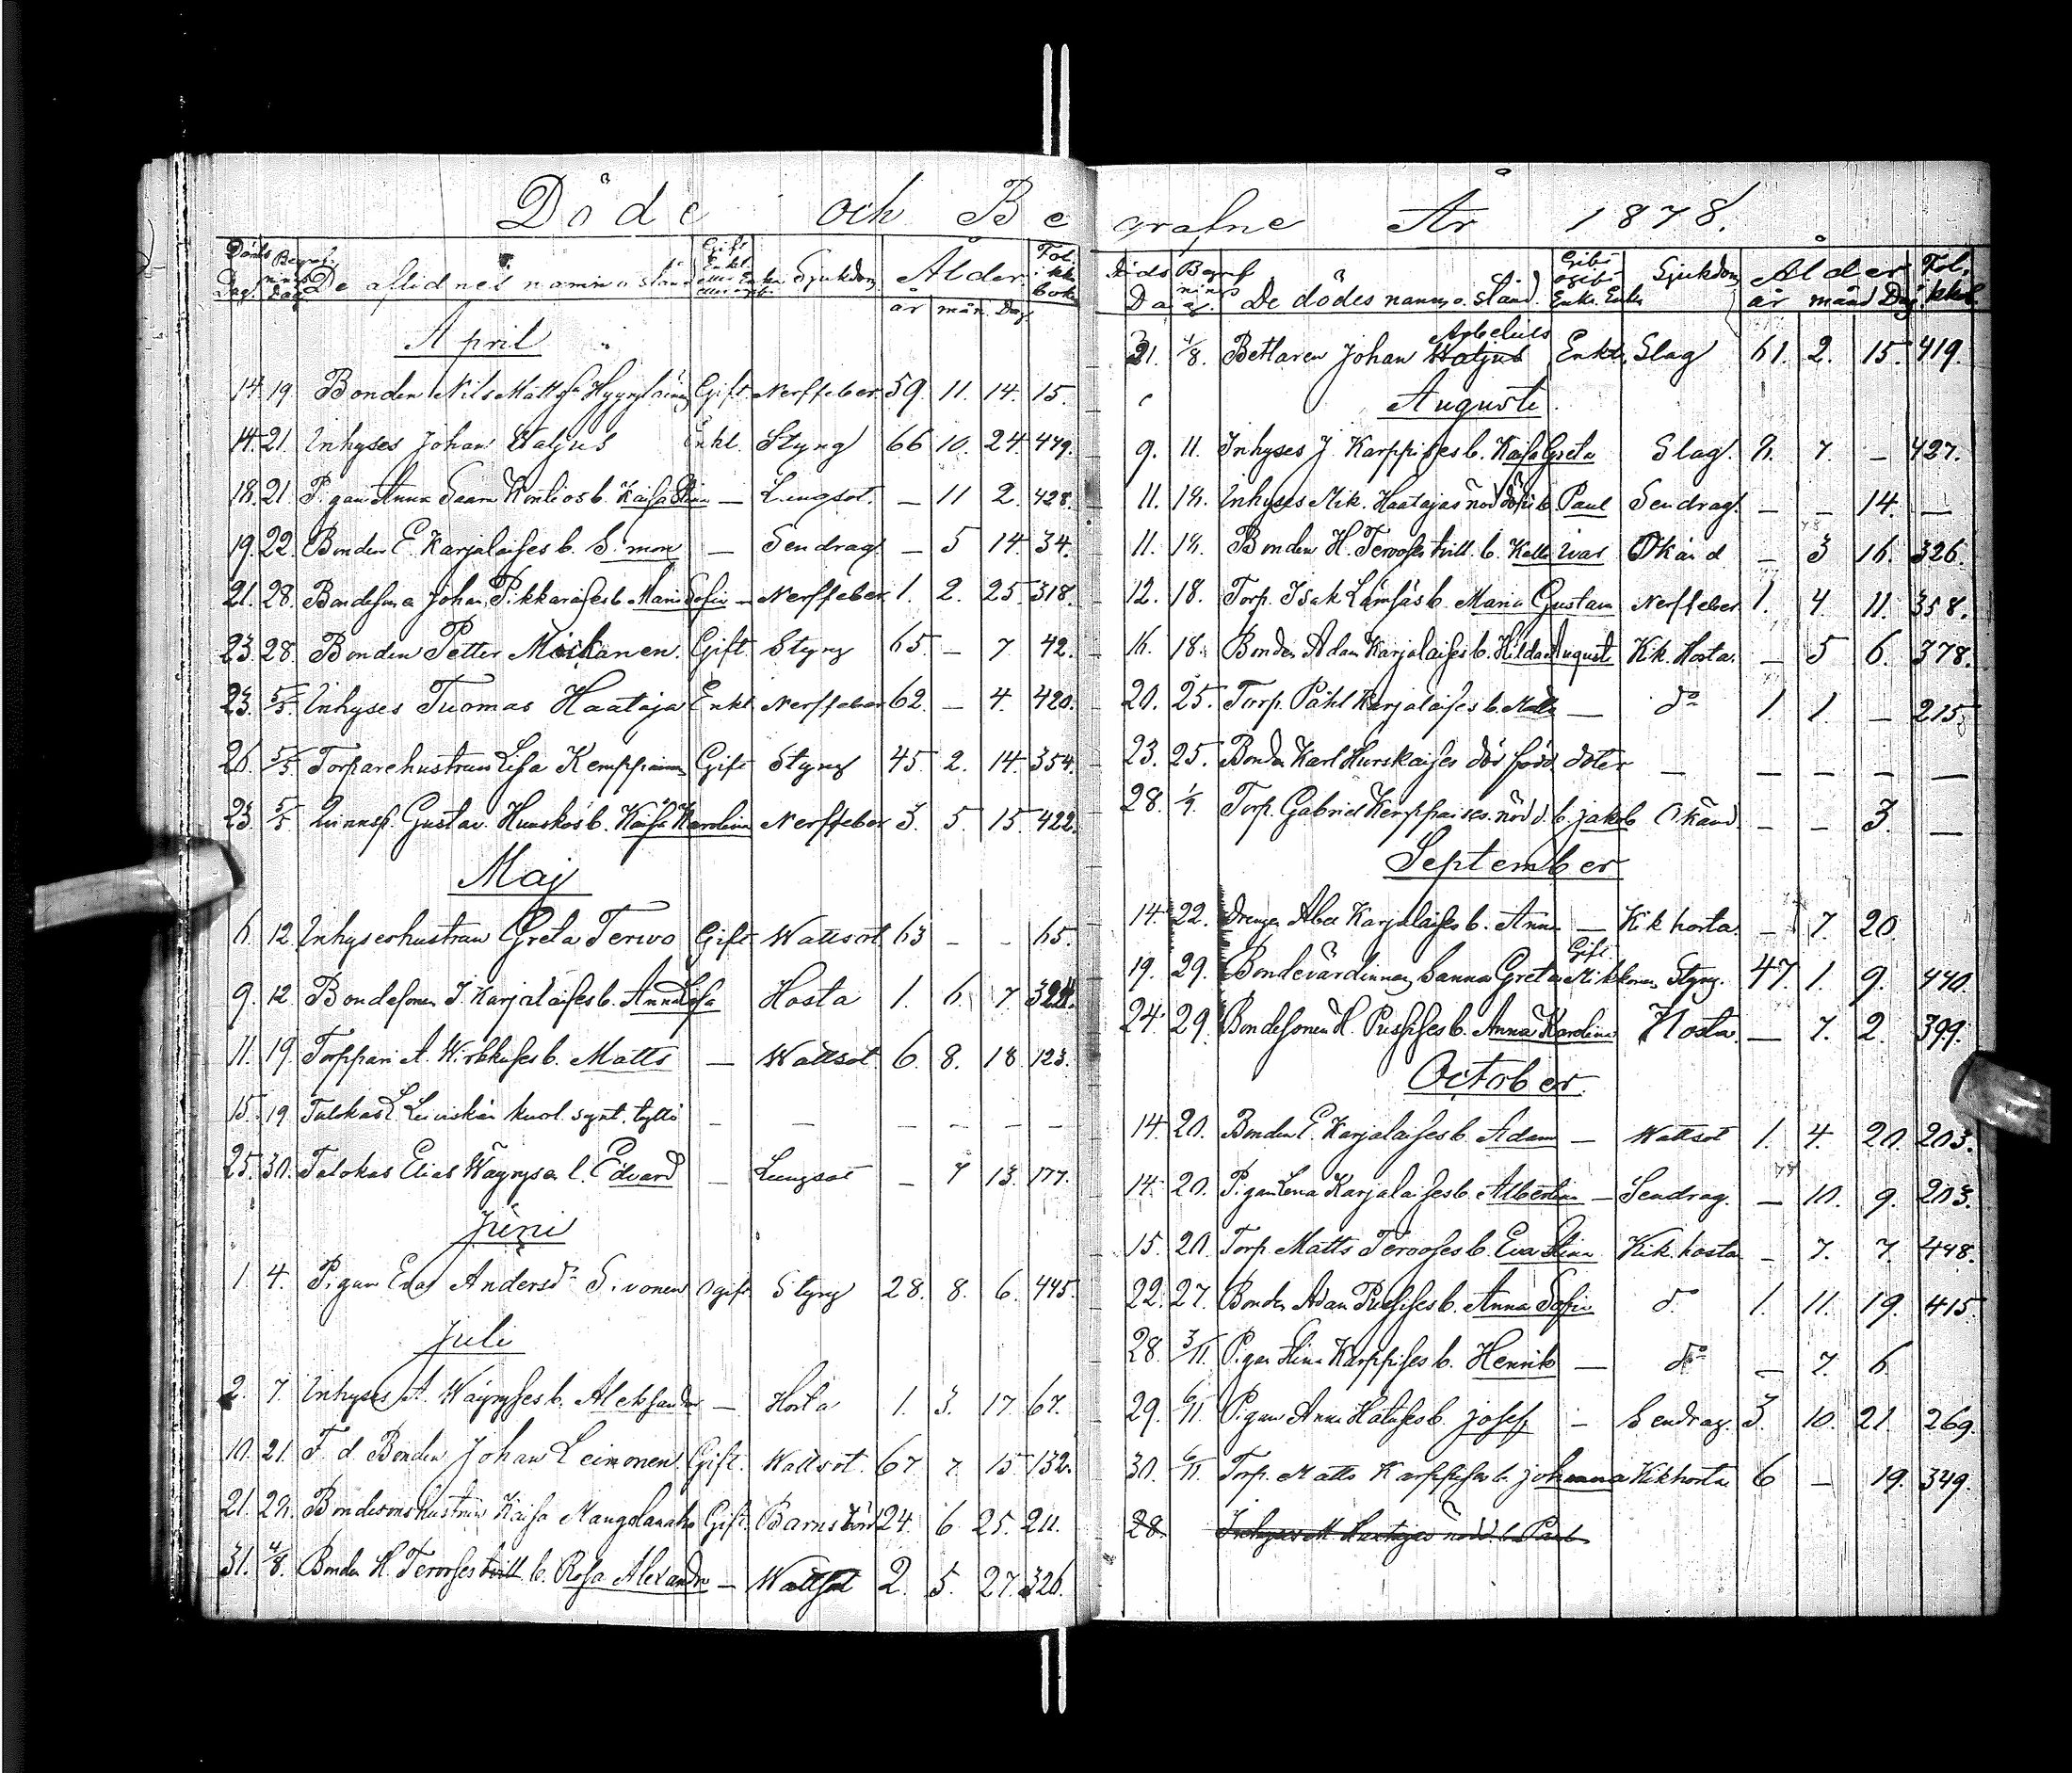 Döde och Be
Döds Dag. Begrafnings Dag De aflidnes namn o stånd Gift Enkl. eller Enka eller ogift Sjukdom Ålder Fol. i kk. bok.
år mån. Dag.
April
14. 19. Bonden Nils Mattss. Gift. Nerffeber 59. 11. 14. 15.
14. 21. Inhyses Johan Haljus Enkl. Styng 66 10. 24. 479.
18. 21. Pigan Anna Saara b. Kaisa Stina — Lungsot. — 11 2. 428.
19. 22. Bonden E. Karjalaises b. Simon — Sendrag. — 5 14. 34.
21. 28. Bondesonen Johan Pikkaraises b. Maria Sofia — Nerffeber 1. 2. 25. 318.
23. 28. Bonden Petter Moilanen. Gift. Styng 65. — 7. 42.
23. 5/5. Inhyses Tuomas Haataja Enkl Nerffeber 62. — 4. 420.
26. 5/5. Torparehustrun Lisa Kemppainen Gift Styng 45. 2. 14. 354.
23 5/5 Qvinnsp. Gustava b. Kaisa Karolina Nerffeber 3. 5. 15. 422.
Maj
6. 12. Inhyseshustrun Greta Terwo Gift Wattsot 63 — — 65.
9. 12. Bondesonen J. Karjalaises b. Anna Lisa Hosta 1. 6. 7.
11. 19. Torppari A. b. Matts — Wattsot. 6. 8. 18 123.
15. 19. Talokas L. kuol. synt. tyttö — — — — — —
25. 30. Talokas Elias Wäyrysen l. Edvard — Lungsot — 7 13. 177.
Juni
1. 4. Pigan Eva Andersdr Sivonen Ogift Styng 28. 8. 6. 445.
Juli
2. 7. Inhyses A. Wäyryses b. Aleksander — Hosta 1. 3. 17. 67.
10. 21. F. d Bonden Johan Leinonen. Gift. Wattsot. 67 7. 15 132.
21. 28. Bondesonshustrun Kaisa Gift. Barnsbörd 24. 6. 25. 211.
31. 4/8. Bonden H. Tervoses tvill. b. Rosa Alexandra — Wattsot 2. 5. 27. 326.
grafne År 1878.
Döds Da Begrafnings ag. De dödes namn o. stånd. Gift ogift Enkl. Enka Sjukdom Ålder Fol. kkb.
år månd Dag
Arbelius
31. 4/8. Bettlaren Johan Haljus Enkl. Slag 61. 2. 15. 419.
Augusti
9. 11. Inhyses J. Karppises b. Kaisa Greta Slag. 2. 7. — 427.
11. 18. Inhyses Mik. Haatajas nöddöpt b. Paul Sendrag. — — 14. —
11. 18. Bonden H. Tervoses tvill. b. Kalle Ivar Okänd — 3 16. 326.
12. 18. Torp. Isak Lämsäs b. Maria Gustava Nerffeber 1. 4. 11. 358.
16. 18. Bonden Adam Karjalaises b. Hilda Augusta Kik. Hosta. — 5 6. 378.
20. 25. Torp. Påhl Karjalaises b. Matts — do 1. 1. — 215.
23. 25. Bonden Karl Hurskaises död född doter — — — — —
28. 1/9. Torp. Gabriel Kemppaises nödd. b. Jakob Okänd. — — 3. —
September
14. 22. Drengen Abel Karjalaises b. Anna — Kik hosta — 7. 20.
Gift.
19. 29. Bondevärdinnan Sanna Greta Mikkonen Styng. 47. 1. 9. 440.
24. 29. Bondesonen H. b. Anna Karolina Hosta — 7. 2. 399.
October.
14. 20. Bonden E. Karjalaises b. Adam — Wattsot 1. 4. 20. 203.
14. 20. Pigan Lena Karjalaises b. Albertina — Sendrag. — 10. 9. 203.
15. 20. Torp. Matts Tervoses b. Eva Stina Kik. hosta — 7. 7. 448.
22. 27. Bonden Adam b. Anna Sofia do 1. 11. 19. 415.
28. 3/11. Pigan Stina Karppises b. Henrik — do — 7. 6.
29. 6/11. Pigan Anna b. Josef — Sendrag. 3. 10. 21. 269.
30. 6/11. Torp. Matts Karppises b. Johanna Kikhosta 6 — 19. 349.
28. Inhyses M. Haatajas nödd. b. Paul